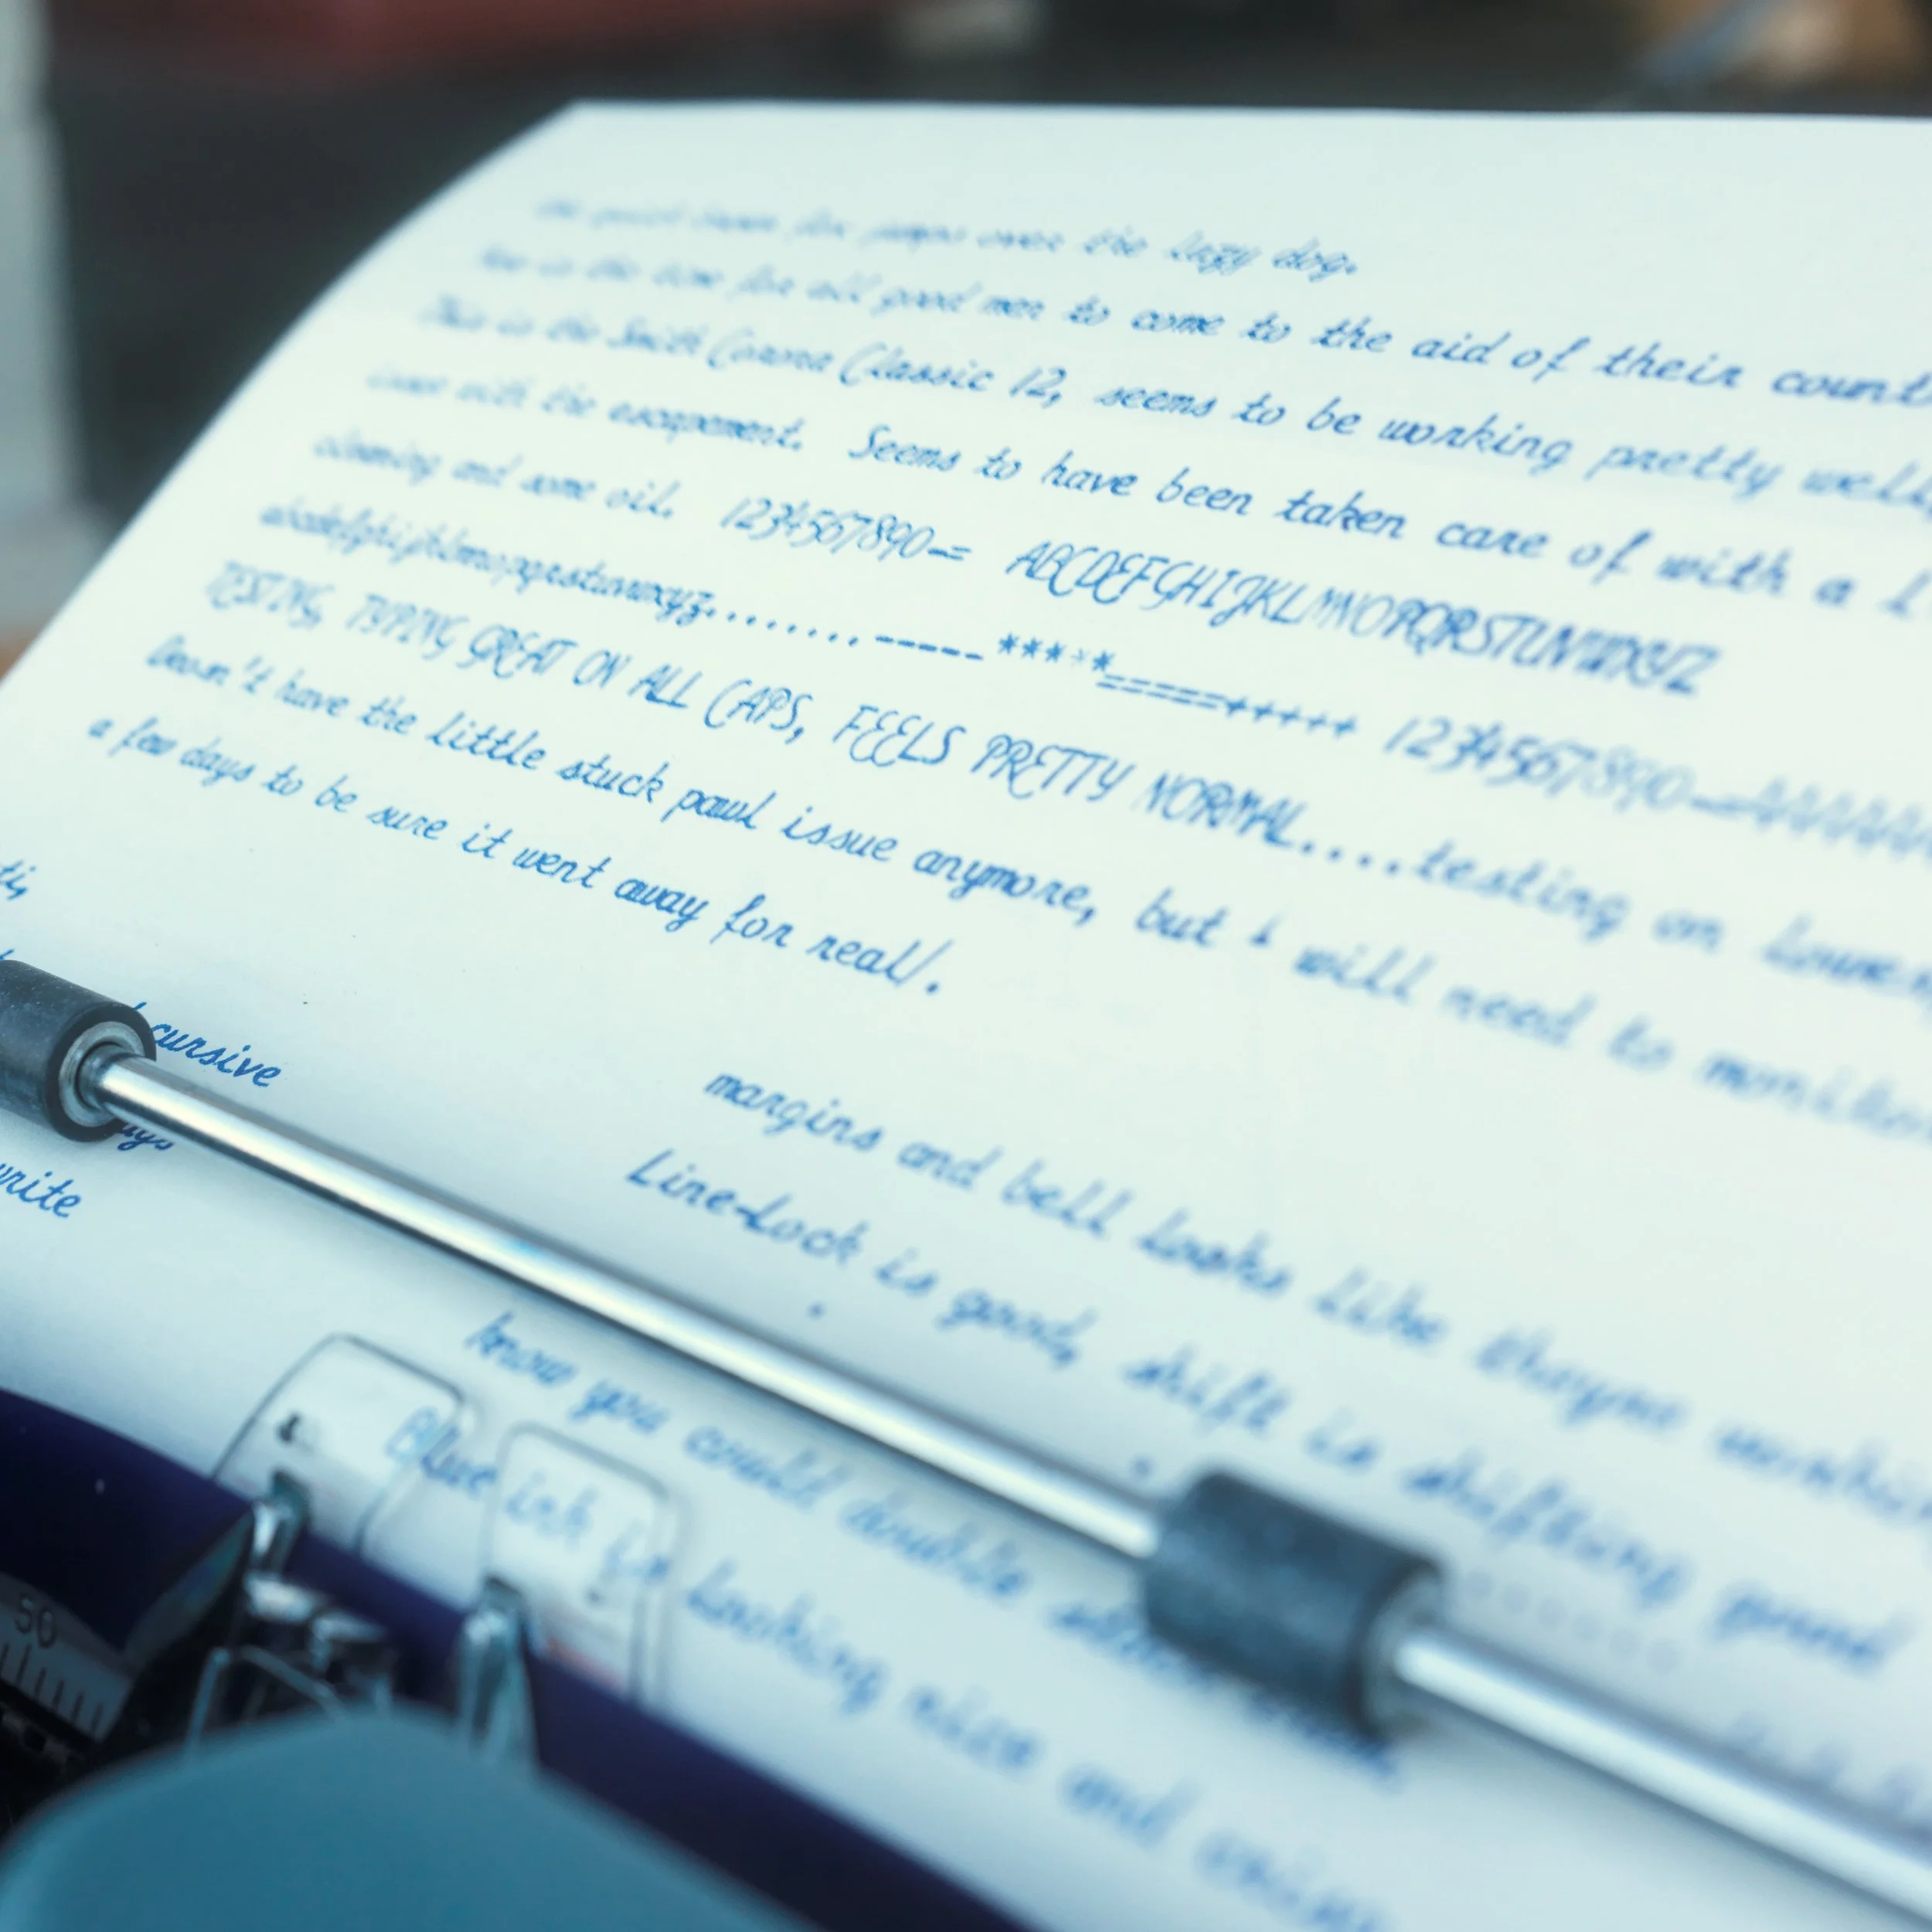 the quick brown fox jumps over the lazy dog.
Now is the time for all good men to come to the aid of their
This is the Smith Corona Classic 12, seems to be working pretty well
with the escapement. Seems to have been taken care of with a
cleaning and some oil. 1234567890-= ABCDEFGHIJKLMNOPQRSTUVWXYZ
abcdefghijklmnopqrstuvwxyz........-----*****=====+++++ 1234567890
TESTING, TYPING GREAT ON ALL CAPS, FEELS PRETTY NORMAL....testing on
Doesn't have the little stuck pawl issue anymore, but i will need to
a few days to be sure it went away for real/.
cursive
write
margins and bell looks like theyre
Line-Lock is good, shift is shifting good
know you could double
Blue ink is looking nice and
50